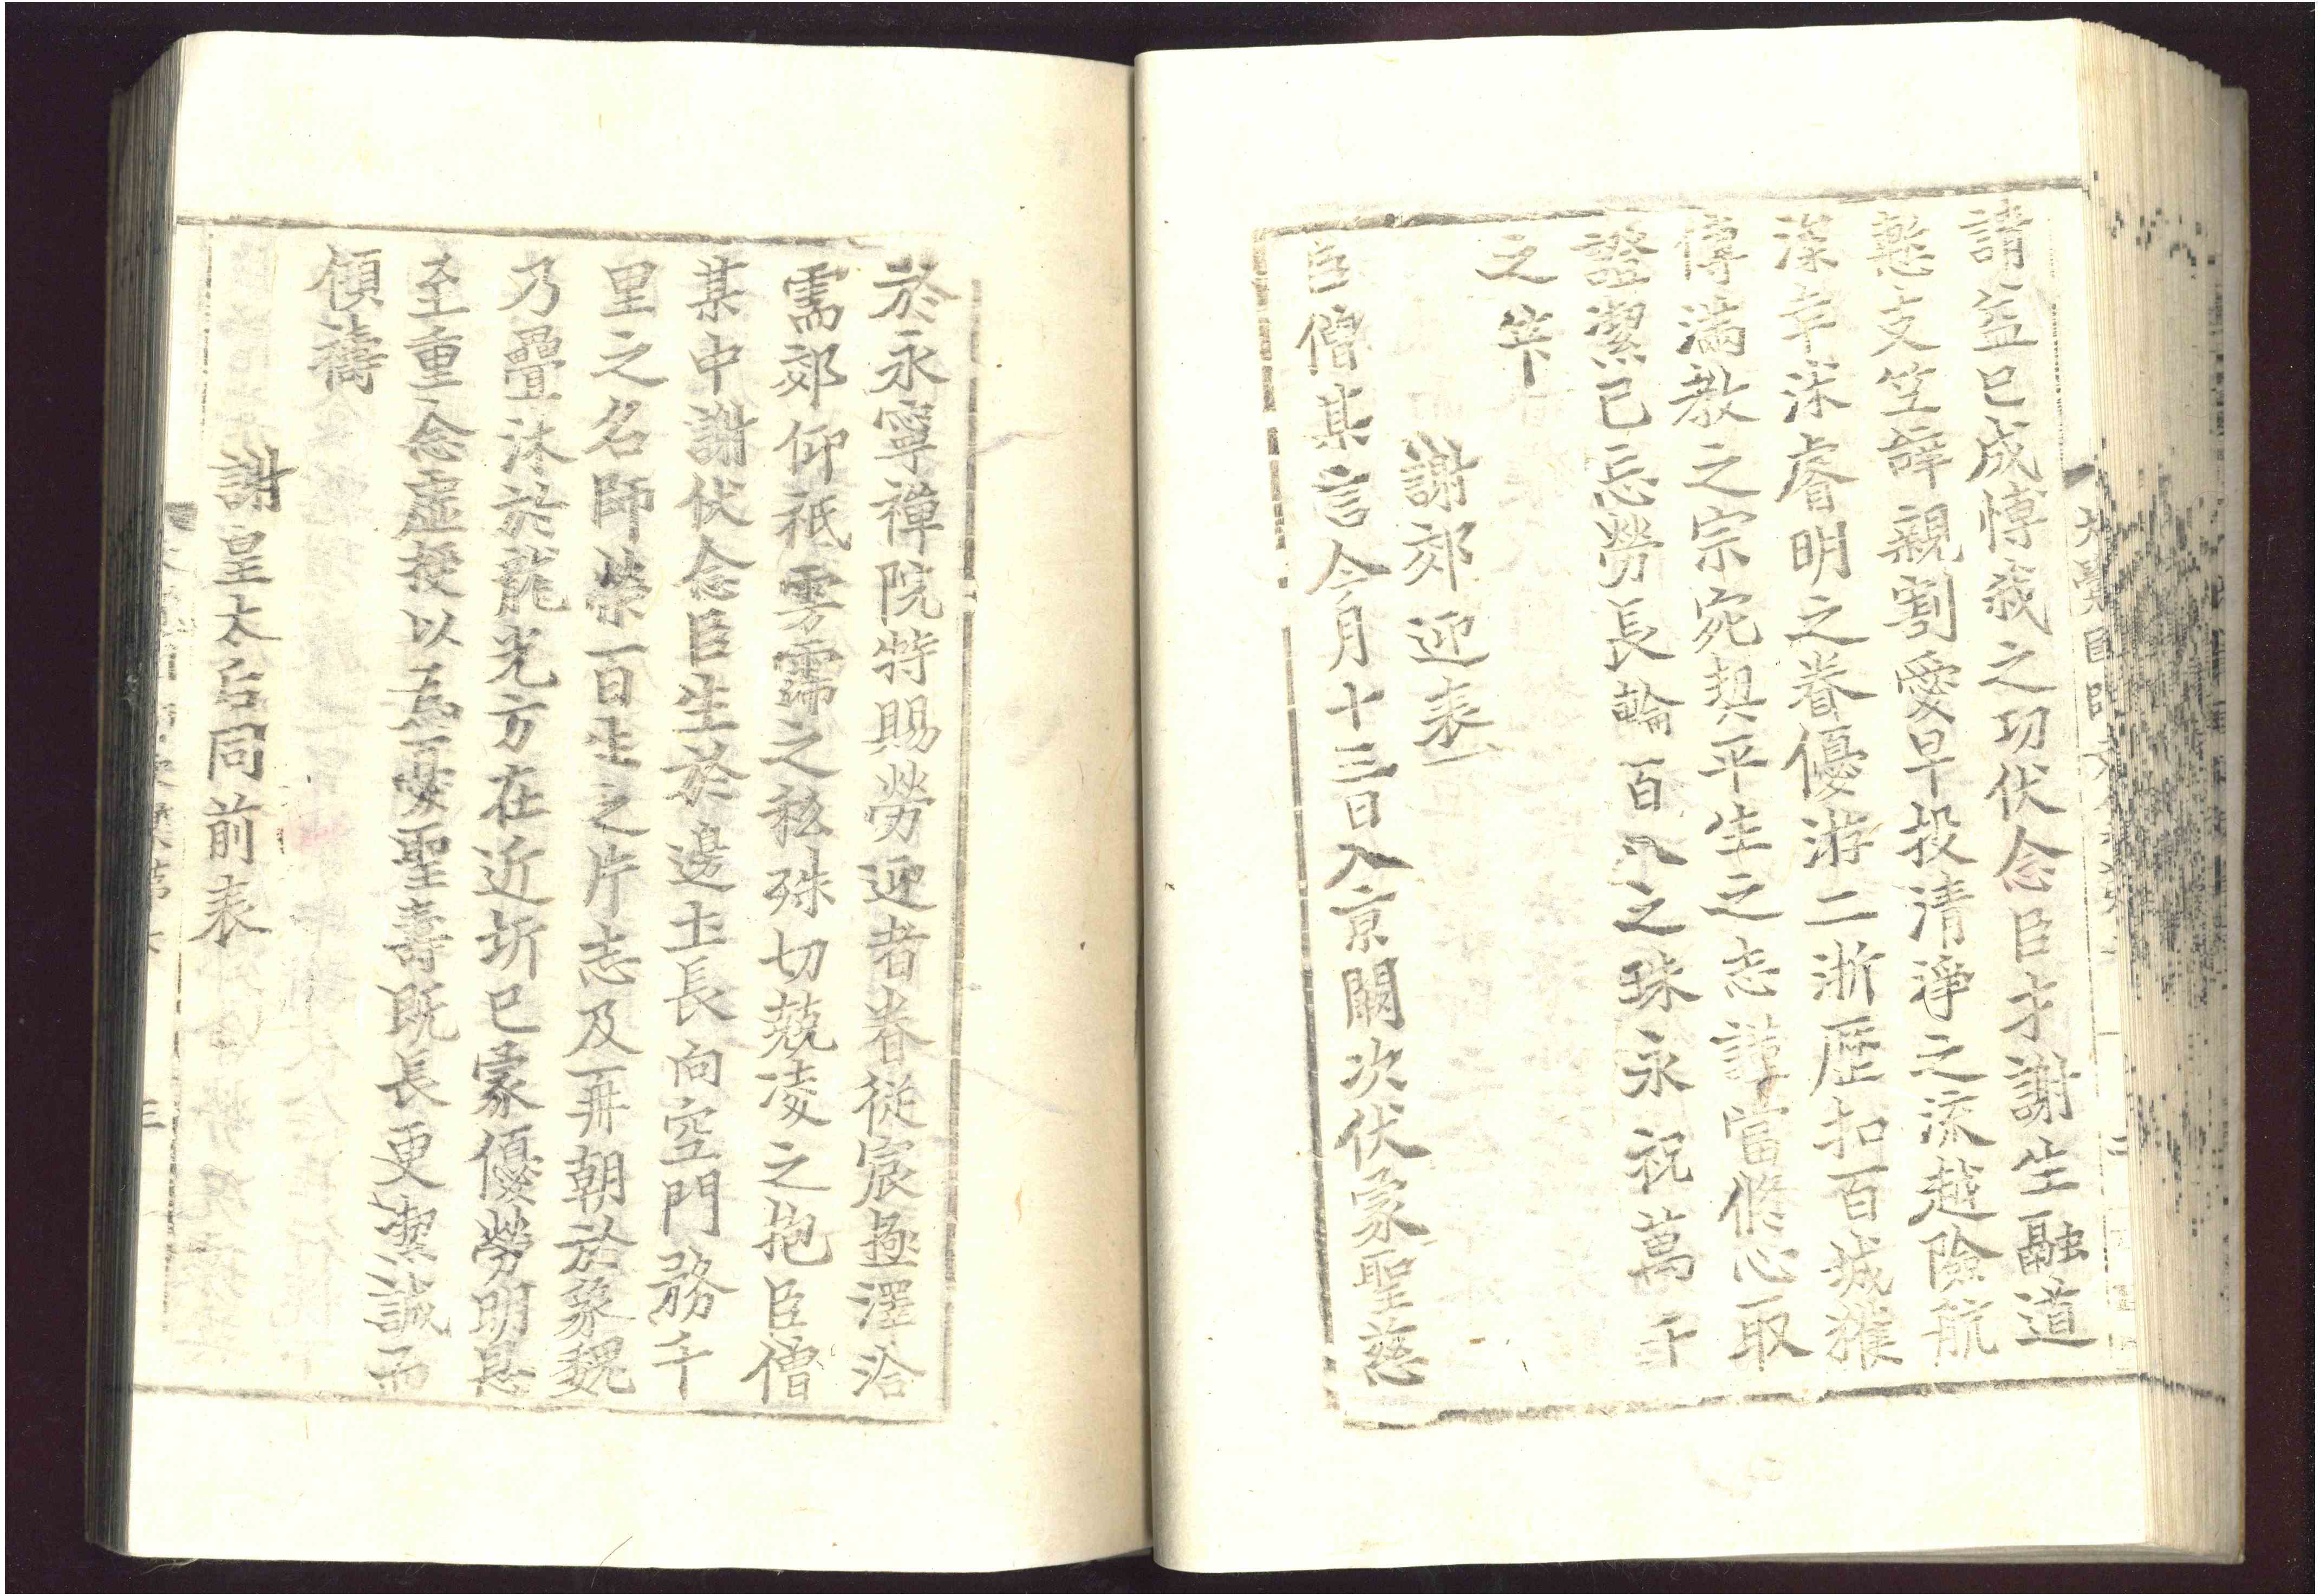 請益已成慱
之切伏念臣才謝生融道
支笠辝親割愛早投清淨之流越險航
深幸深睿明之眷優游二浙歷扣百城
傳滿教之宗宛契平生之志謹當修心取
證潔己忘勞長輪百八之珠永祝萬千
之筭
謝郊迎表
臣僧某言今月十三日入京闕次伏蒙聖慈
於永寧禪院特賜勞迎者眷從宸極澤洽
需郊仰祇雱霈之私殊切兢凌之抱臣僧
某中謝伏念臣生於邊土長向空門務千
里之名師榮一百生之片志及再朝於象魏
乃疊沐於龍光方在近圻已蒙優勞明恩
至重念虛授以爲憂聖壽旣長更潔誠而
傾禱
謝皇太后同前表
三